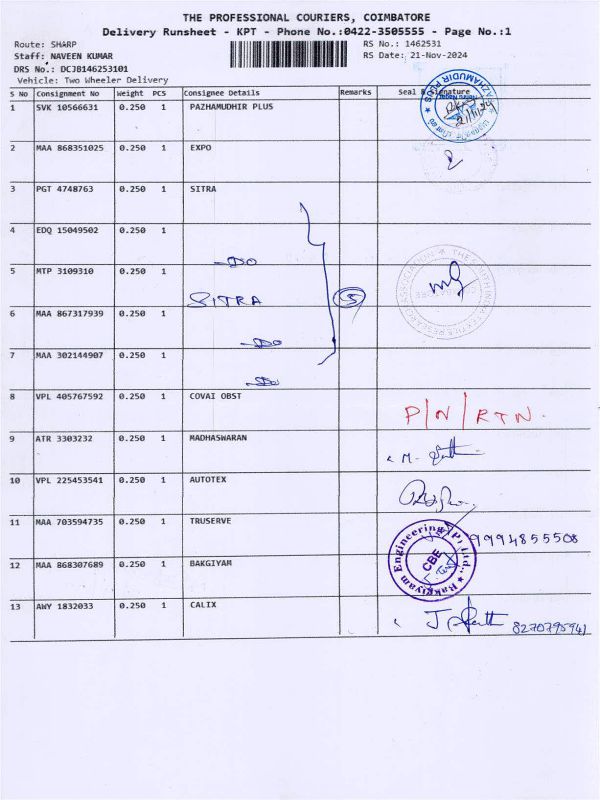 THE PROFESSIONAL COURIERS, COIMBATORE
Delivery Runsheet - KPT - Phone No.:0422-3505555 - Page No.:1
Route: SHARP RS No.: 1462531
Staff: NAVEEN KUMAR RS Date: 21-Nov-2024
DRS No.: DCJB146253101
Vehicle: Two Wheeler Delivery
S No Consignment No Weight PCS Consignee Details Remarks Seal & Signature
PAZHAMUDIR PLUS
1 SVK 10566631 0.250 1 PAZHAMUDHIR PLUS
2 MAA 868351025 0.250 1 EXPO
3 PGT 4748763 0.250 1 SITRA
4 EDQ 15049502 0.250 1
-DO
5 MTP 3109310 0.250 1
SITRA 5
6 MAA 867317939 0.250 1
-DO
7 MAA 302144907 0.250 1
-DO
8 VPL 405767592 0.250 1 COVAI OBST
P/N/RTN.
9 ATR 3303232 0.250 1 MADHASWARAN
10 VPL 225453541 0.250 1 AUTOTEX
11 MAA 703594735 0.250 1 TRUSERVE
9994855508
12 MAA 868307689 0.250 1 BAKGIYAM
Bakgiyam Engineering (P) Ltd.,
CBE
13 AWY 1832033 0.250 1 CALIX
8270795941